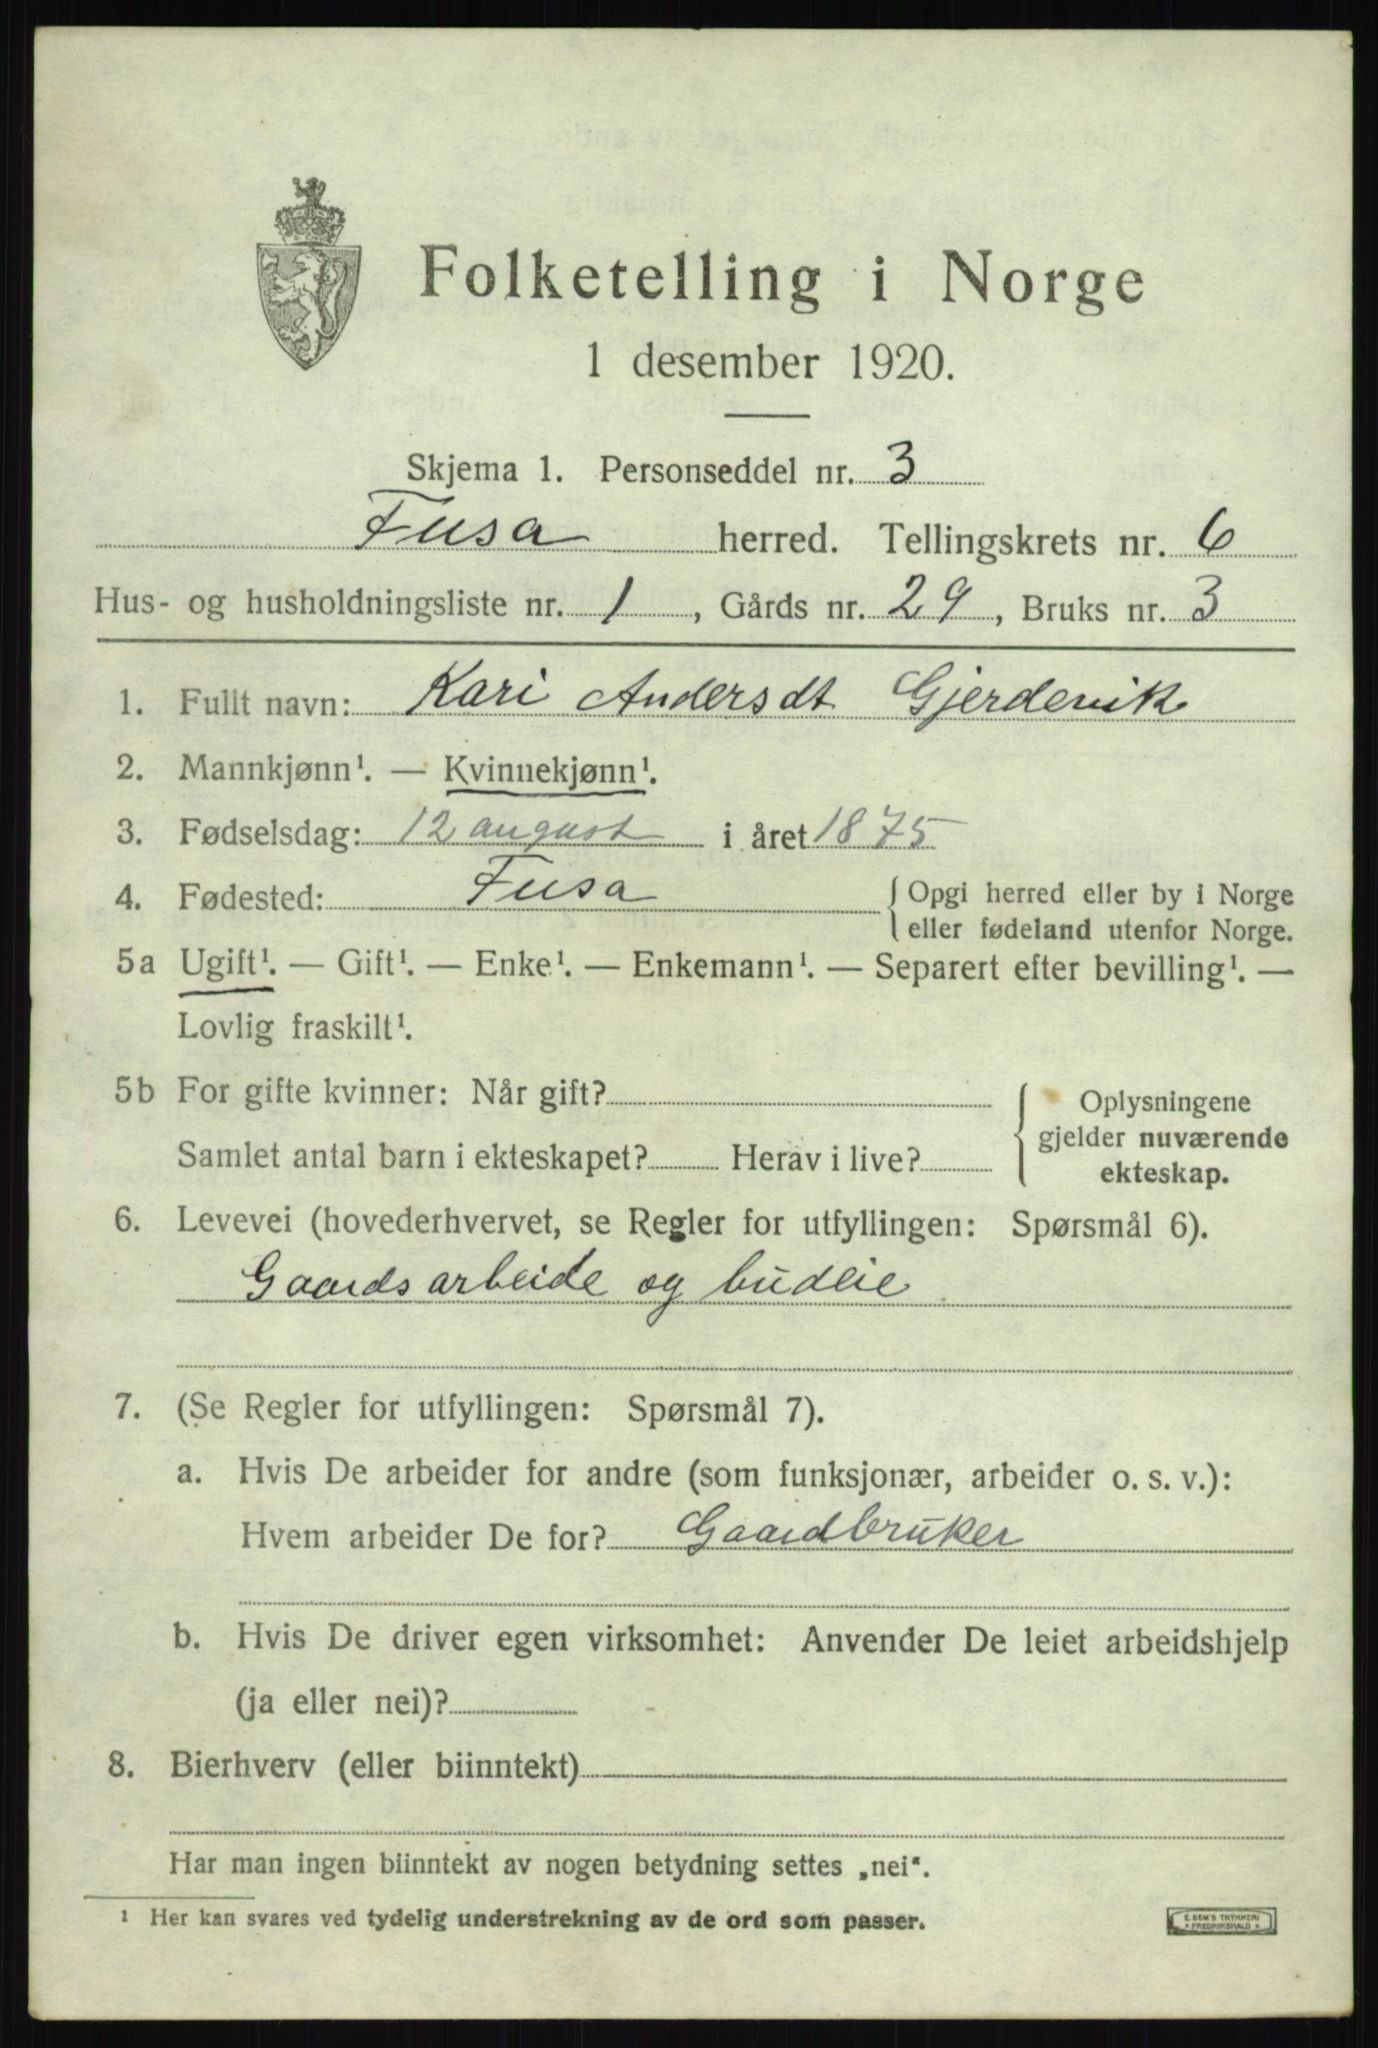 Folketelling i Norge
1 desember 1920.
Skjema 1. Personseddel nr. 3
Fusa herred. Tellingskrets nr. 6
Hus- og husholdningsliste nr. 1, Gårds nr. 29, Bruks nr. 3
1. Fullt navn: Kari Andersdt Gjerdevik
2. Mannkjønn¹. — Kvinnekjønn¹.
3. Fødselsdag: 12 august i året 1875
4. Fødested: Fusa { Opgi herred eller by i Norge
eller fødeland utenfor Norge.
5a Ugift¹. — Gift¹. — Enke¹. — Enkemann¹. — Separert efter bevilling¹. —
Lovlig fraskilt¹.
5b For gifte kvinner: Når gift? { Oplysningene
gjelder nuværende
Samlet antal barn i ekteskapet? Herav i live?
ekteskap.
6. Levevei (hovederhvervet, se Regler for utfyllingen: Spørsmål 6).
Gaardsarbeide og budeie
7. (Se Regler for utfyllingen: Spørsmål 7).
a. Hvis De arbeider for andre (som funksjonær, arbeider o. s. v.):
Hvem arbeider De for? Gaardbruker
b. Hvis De driver egen virksomhet: Anvender De leiet arbeidshjelp
(ja eller nei)?
8. Bierhverv (eller biinntekt)
Har man ingen biinntekt av nogen betydning settes „nei“.
¹ Her kan svares ved tydelig understrekning av de ord som passer.
E. SEM'S TRYKKERI
* FREDRIKSHALD *